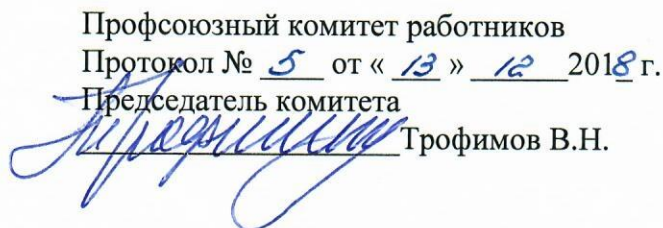 Профсоюзный комитет работников
Протокол № 5 от « 13 » 12 2018 г.
Председатель комитета
Трофимов В.Н.